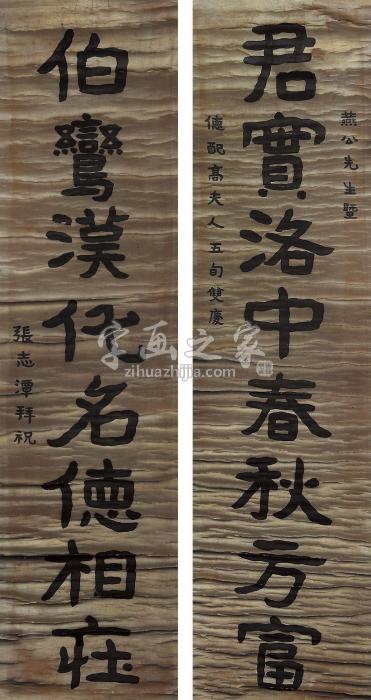 燕公先生暨
德配高夫人五旬雙慶
君實洛中春秋方富
伯鸞漢代名德相莊
張志潭拜祝
字画之家
zihuazhijia.com